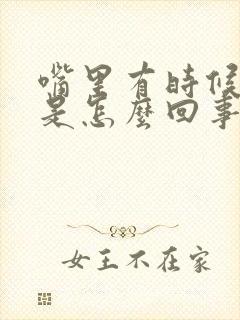 嘴里有时候
是怎麼回事
女王不在家